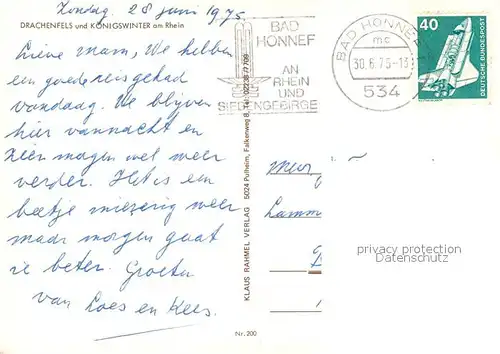 Zondag. 28 juni 1975.
DRACHENFELS und KÖNIGSWINTER am Rhein
Lieve Mam, We hebben
een goede reis gehad
vandaag. We blijven
hier vannacht en
zien morgen wel weer
verder. Het is een
beetje miezerig weer
maar morgen gaat
ie beter. Groeten
van Loes en Kees.
KLAUS RAHMEL VERLAG 5024 Pulheim, Falkenweg 8, Tel. 02238/7709
BAD
HONNEF
AN
RHEIN
UND
SIEBENGEBIRGE
BAD HONNEF
mc
30.6.75-13
534
40
DEUTSCHE BUNDESPOST
Mevr
Lamm
privacy protection
Datenschutz
Nr. 200